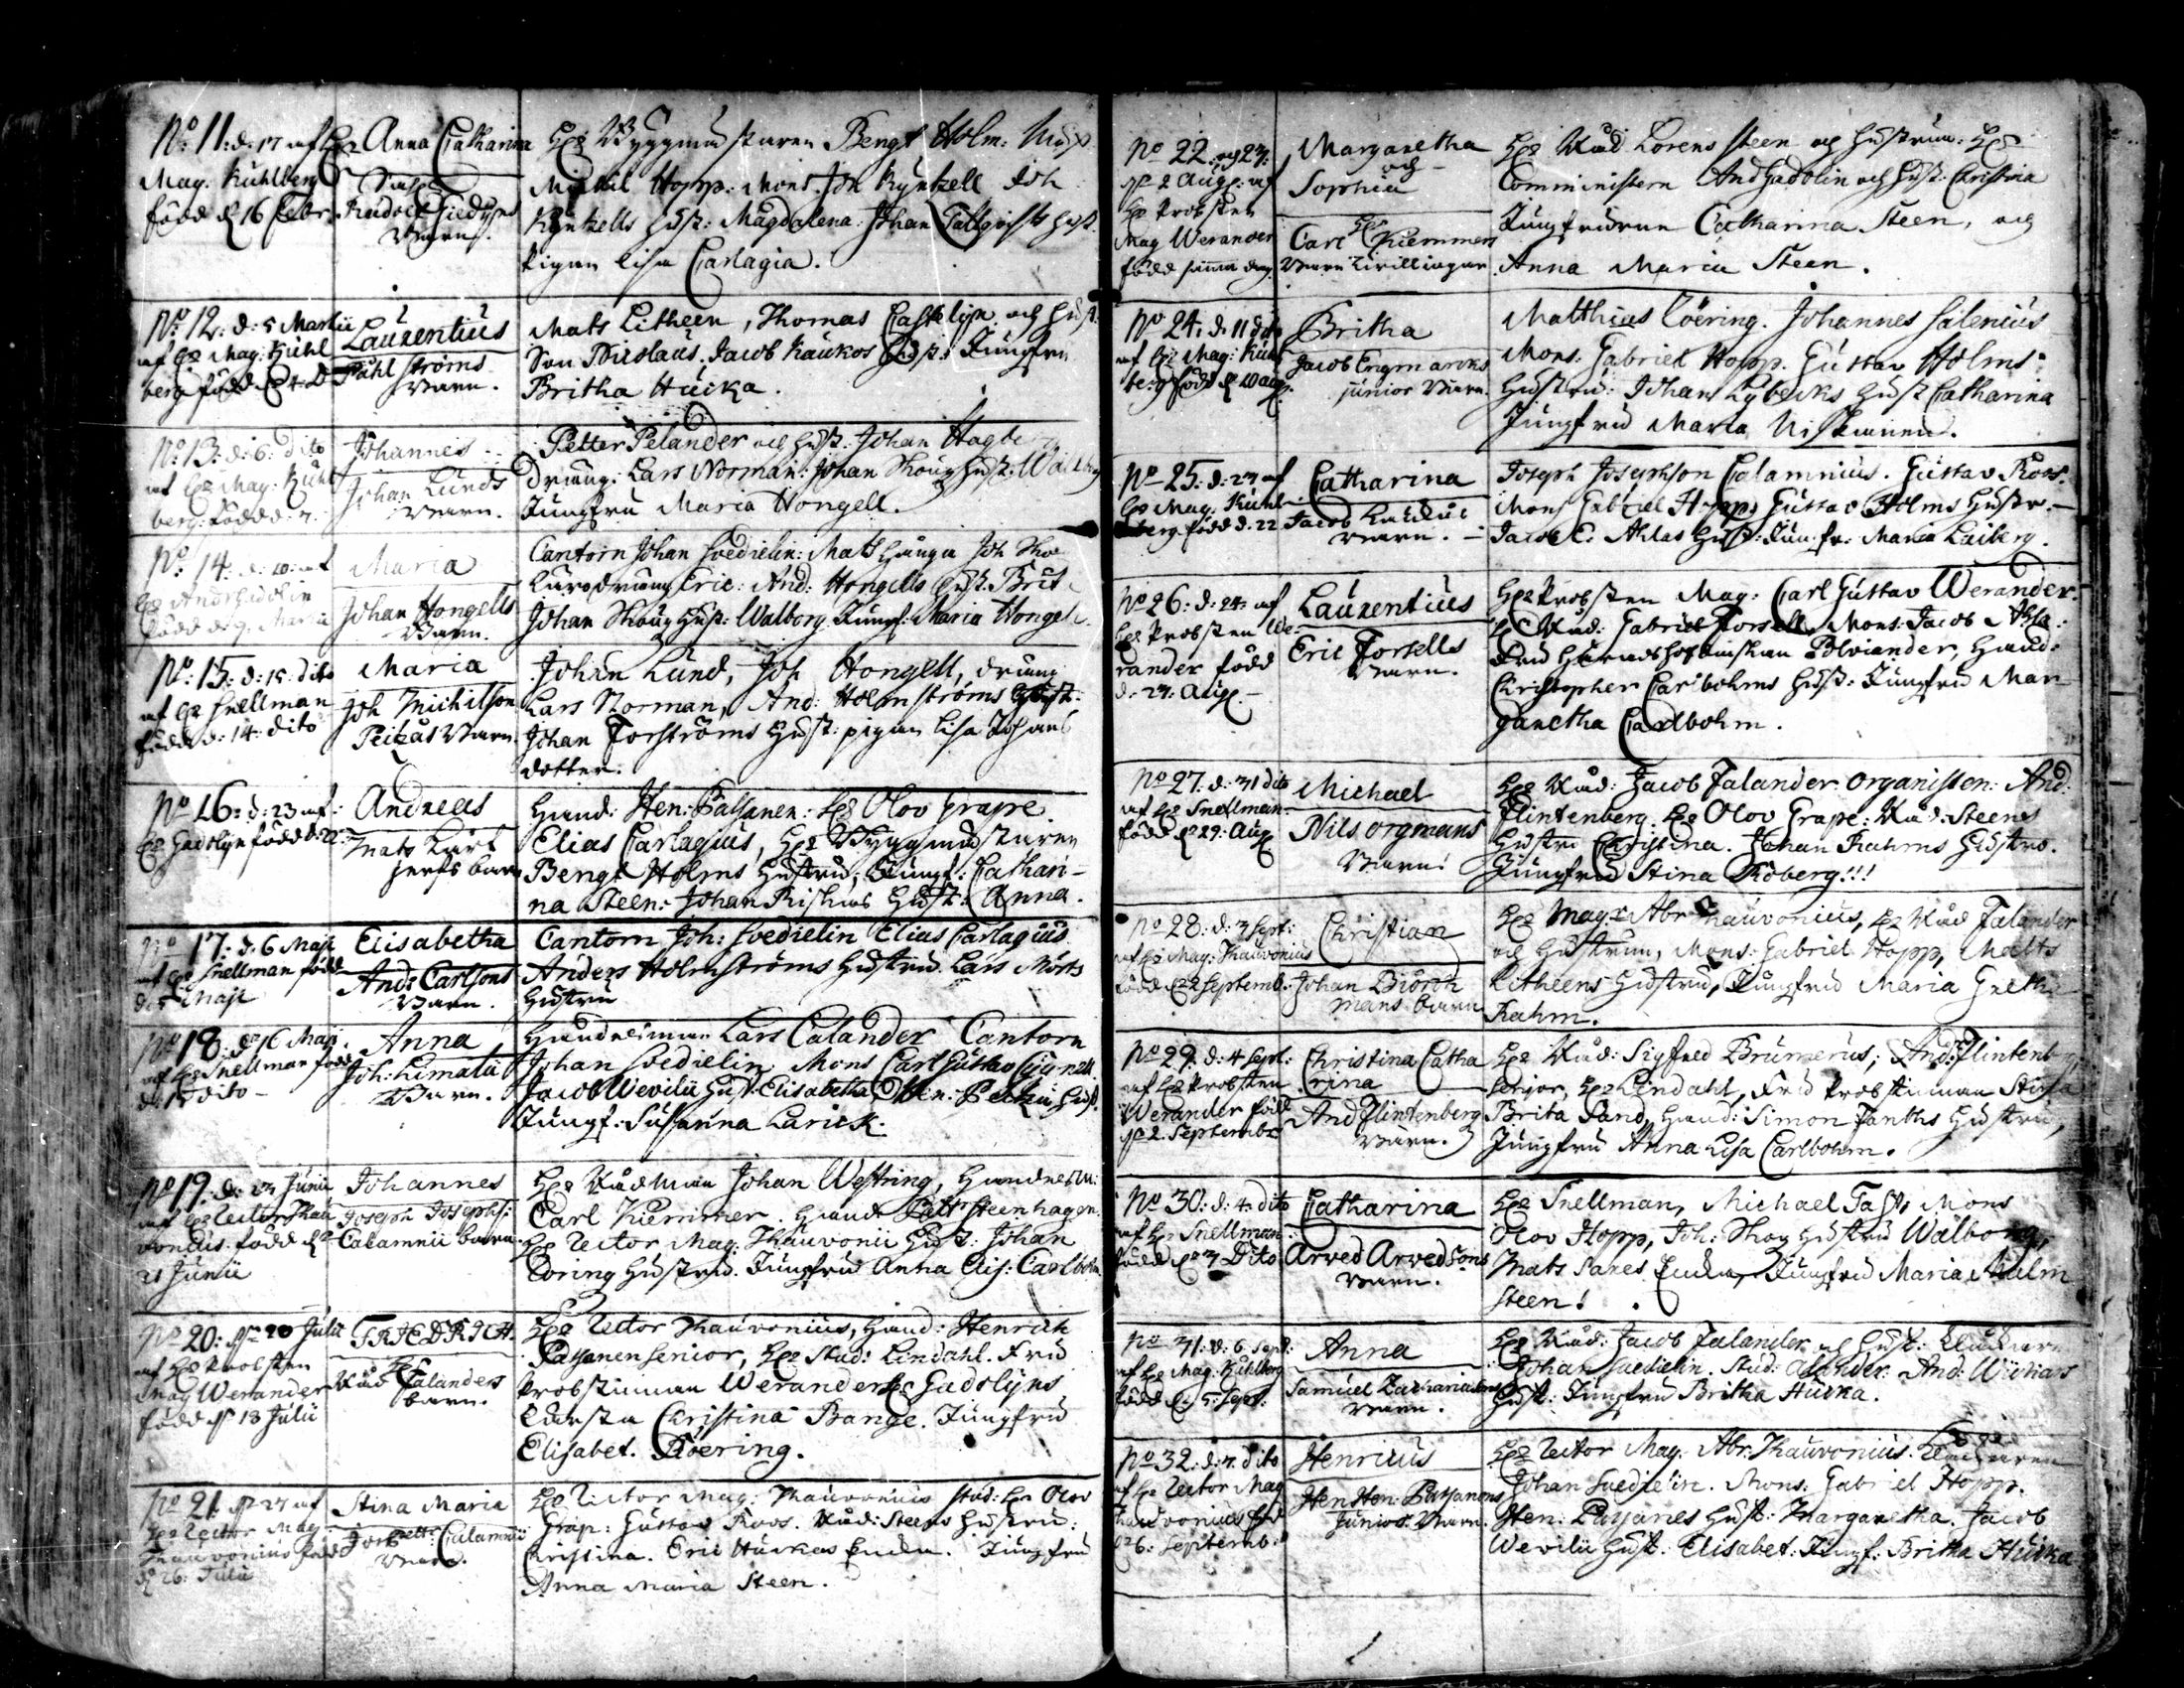 No: 11: d. 17 af Hr
Mag. Kuhlberg
född d 16 Febr.
Anna Catharina
Barn.
Hr Byggmästaren Bengt Holm:
Michel Hopp: Mons. Joh Kyntzell Joh
Kyntzells Hust: Magdalena: Johan Tallqvists Hust.
Pigan Lisa Carlagia.
No: 12: d: 5 Martii
af Hr Mag: Kuhl
berg född d 4: D
Laurentius
Påhl Ströms
Barn.
Mats Litheen, Thomas och Hust:
Son Nicolaus. Jacob Kaukos Hust: Jungfru
Britha Hucka.
No: 13: d: 6: dito
af Hr Mag: Kuhl
berg: född d:
Johannes
Johan Lunds
Barn.
Petter Pelander och Hust: Johan Hagberg
Dräng: Lars Norman: Johan Skoug Hust: Walborg
Jungfru Maria Hongell.
No: 14: d: 10: af
Hr And: Gadolin
född d: 9. Martii
Maria
Johan Hongells
Barn.
Cantorn Johan Svedielin: Mats Joh
dräng Eric: And: Hongells Hust. Brit
Johan Skoug Hust: Walborg. Jungf: Maria Hongel
No: 15: d: 15: dito
af Hr Snellman
född d: 14: dito
Maria
Joh Michilson
Peitzas Barn.
Johan Lund, Joh Hongell, dräng
Lars Norman, And: Holmströms Hust:
Johan Forströms Hust: pigan Lisa Johans
dotter.
No 16: d: 23 af:
Hr Gadolin född d: 22:
Andreas
Mats Kart
jerfs barn
Hand: Hen: Paltzanen: Hr Olov Grape
Elias Carlagius, Hr Byggmästaren
Bengt Holms Hustru, Jungf: Cathari-
na Steen: Johan Riskas Hust: Anna.
No 17: d. 6 Maji
af Hr Snellman född
d: 5 Maji
Elisabetha
And: Carlsons
Barn.
Cantorn Joh: Svedielin Elias Carlagius
Anders Holmströms Hustru Lars Mörts
Hustru
No 18: d: 16 Maji
af Hr Snellman född
d: 15 dito -
Anna
Joh: Limatii
Barn.
Handelsman Lars Calander Cantorn
Johan Svedielin Mons Carl Gustav Cygnell
Jacob Wevilii Hust: Elisabetha Hen: Hust.
Jungf: Susanna Larick.
No 19: d: 23 Junii
af Hr Rector Thau
vonius född d
21 Junii
Johannes
Joseph Josephs:
Calamnii barn.
Hr Rådman Johan Westring, Handelsm:
Carl Kiemmer. Hand: Pettr Steenhagen
Hr Rector Mag: Thauvonii Hust: Johan
Coring Hustru. Jungfru Anna Elis: Carlbohm.
No 20: d 20 Julii
af Hr Probsten
Mag Werander
född d 18 Julii
FRIEDRICH.
Råd Hr Falanders
barn.
Hr Rector Thauvonius, Hand: Henrich
Paltzanen senior, Hr Stud: Lindahl. Fru
Probstinnan Werander Hr Gadolijns
Christina Bange. Jungfru
Elisabet. Köering.
No 21. d 27 af
Hr Rector Mag:
Thauvonius född
d 26: Julii
Stina Maria
Calamnii
Barn.
Hr Rector Mag: Thauvonius Stud: Hr Olov
Grap: Gustav Roos. Råd: Steens Hustru:
Christina. Eric Huckas Enka. Jungfru
Anna Maria Steen.
No 22: og 23:
d 2 Aug: af
Hr Probsten
Mag Werander
född samma dag.
Margaretha
och
Sophia
Carl Hr Kiemmers
Barn Tvillingar
Hr Råd Lorens Steen og Hustrun: Hr
Comministern And Gadolin och Hust: Christina
Jungfrurne Catharina Steen, och
Anna Maria Steen.
No 24: d: 11 dito
af Hr Mag: Kuhl
berg född d 10 aug.
Britha
Jacob Engmarcks
junior Barn.
Matthias Cöering. Johannes Salenius
Mons: Gabriel Hopp. Gustav Holms:
Hustru: Johan Lybecks Hust Catharina
Jungfru Maria Niskanen.
No 25: d: 23 af
Hr Mag. Kuhl
berg: född d. 22
Catharina
Jacob
Barn.
Joseph Josephson Calamnius. Gustav Roos.
Mons Gabriel Hopp, Gustav Holms Hustr. -
Jacob E: Ahlas Hust: Jun.fr. Maria Laiberg.
No 26: d: 24: af
Hr Probsten We-
rander född
d: 23: Aug. -
Laurentius
Eric Forsells
Barn.
Hr Probsten Mag: Carl Gustav Werander.
Hr Råd: Gabriel Forsell, Mons: Jacob
Fru Polviander, Hand:
Christopher Carlbohms Hust: Jungfru Mar-
garetha Carlbohm.
No 27. d: 31 dito
af Hr Snellman
född d 29: Aug
Michael
Nils orgmans
Barn:
Hr Råd: Jacob Falander. Organisten: And:
Flintenberg. Hr Olov Grape: Råd: Steens
Hustru Christina. Johan Rahms Hustru.
Jungfru Stina Röberg!!!
No 28: d: 3 Sept:
af Hr Mag: Thauvonius
född d 2 Septemb.
Christian
Johan Biörck
mans barn
Hr Mag: Abr Thauvonius, Hr Råd Falander
og Hustrun, Mons: Gabriel Hopp, Matts
Litheens Hustru, Jungfru Maria Greta
Rahm.
No 29: d: 4 Sept:
af Hr Probsten
Werander född
d 2. Septembr
Christina Catha
rina
And Flintenberg
Barn.
Hr Råd: Sigfred Brumerus, And: Flintenb
senior, Hr Lindahl, Fru Probstinnan Stina
Brita Sand, Hand: Simon Janths Hustru,
Jungfru Anna Lisa Carlbohm.
No 30: d: 4. dito
af Hr Snellman
född d 3 Dito
Catharina
Arved Arvedsons
Barn.
Hr Snellman, Michael Tast, Mons
Olov Hopp, Joh: Skog Hustru Walborg,
Mats Sares Enka, Jungfru Maria Malm
steen!
No 31: d. 6 Sept:
af Hr Mag: Kuhlberg
född d. 5: Sept:
Anna
Samuel Zacharias
Barn.
Hr Råd: Jacob Falander og Hust: Klockarn
Johan Svedielin. Stud: Alander. And: Wichars
Hust: Jungfru Britha Hucka.
No 32: d: 7: dito
af Hr Rector Mag
Thauvonius född
d 6: Septemb:
Henricus
Hen Hen: Paltzanens
Junior: Barn:
Hr Rector Mag: Abr: Thauvonius. Klockaren
Johan Svedielin. Mons: Gabriel Hopp.
Hen: Paltzanes Hust: Margaretha. Jacob
Wevilii Hust: Elisabet: Jungf: Britha Hucka